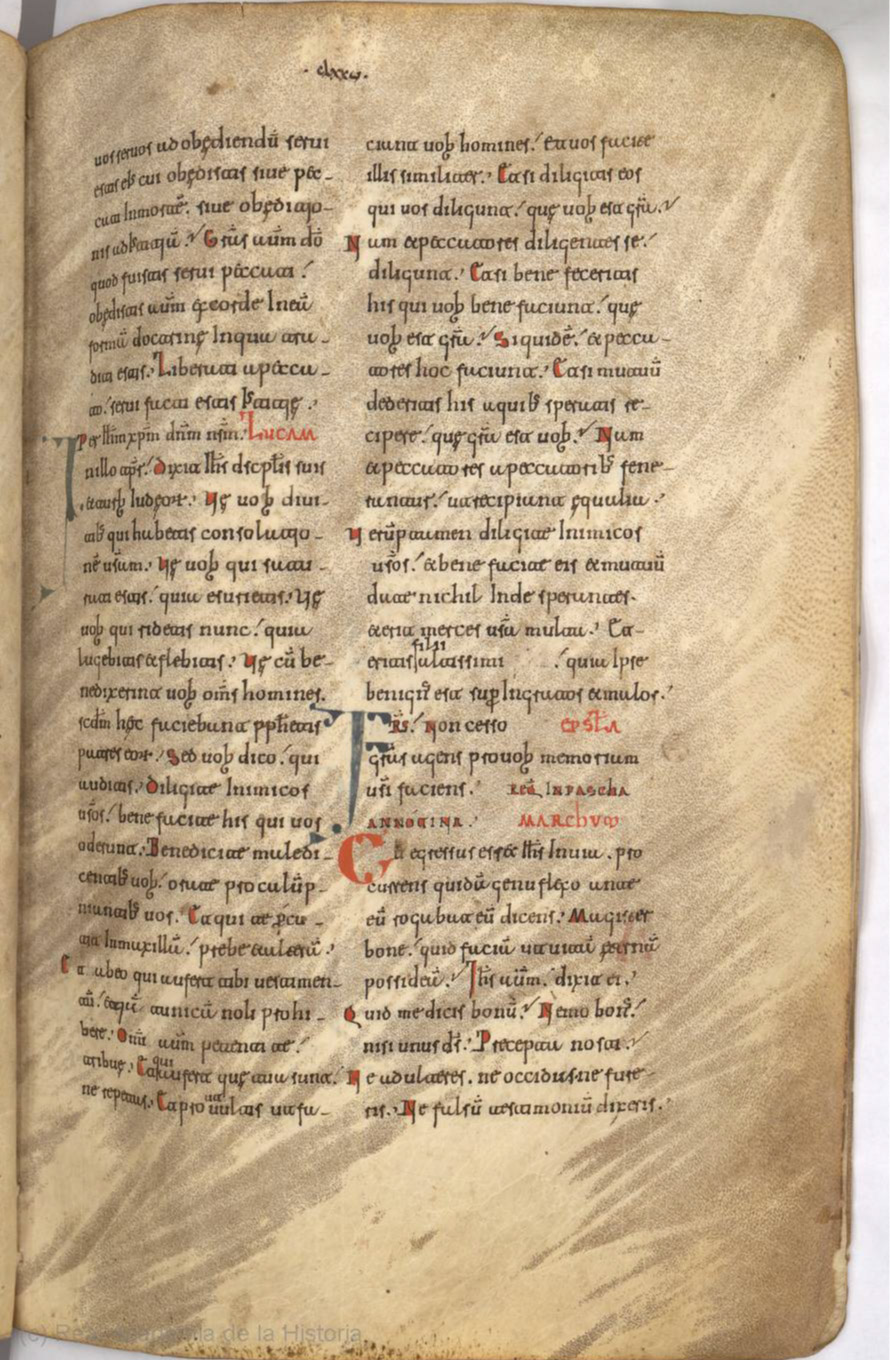 · clxxv ·
vos servos ad obędiendū servi
estis eiꝰ cui obędistis sive pec-
cati In mortē. sive obęditjo-
nis ad Iustitjā. Grās aūm dō
quod fuistis servi pēccati.
obędistis aūm ex corde In eā
formā doctrinę In qua tra-
diti estis. Liberati a pecca-
to. servi facti estis Iustitię.
Per Ihm xpm dnm nsm. LUCAM
In illo tmprs. Dixit Ihs discplis suis
et turbis Iudęorum. Vę vob divi-
tibus qui habetis consolatjo-
nē vsām. Vę vob qui satu-
rati estis. quia esurietis. Vę
vob qui ridetis nunc. quia
lugebitis et flebitis. Vę cū be-
nedixerint vob oms homines.
scdm hęc faciebant pphetis
patres eorum. Sed vob dico. qui
auditis. Diligite Inimicos
vsos. benefacite his qui vos
oderunt. Benedicite maledi-
centibus vob. orate pro calūp-
niantibus vos. Et qui te percu-
tit In maxillā. prebe et alterā.
Et ab eo qui aufert tibi vestimen-
tū. etjā tunicā noli prohi-
bere. Omī aūm petenti te.
tribue. Et qui aufert quę tua sunt.
ne repetas. Et prout vultis ut fa-
ciant vob homines. Et vos facite
illis similiter. Et si diligitis eos
qui vos diligunt. quę vob est grā.
Nam et peccatores diligentes se.
diligunt. Et si bene feceritis
his qui vob bene faciunt. quę
vob est grā. Siquidē. et pecca-
tores hoc faciunt. Et si mutuū
dederitis his a quibus speratis re-
cipere. quę grā est vob. Nam
et peccatores peccatoribus fene-
rantur. ut recipiant ęqualia.
Verūptamen diligite Inimicos
vsos. et bene facite eis et mutuū
date nichil Inde sperantes.
et erit merces vsā multa. Et
eritis filii altissimi. quia Ipse
benignus est supr Ingratos et malos.
FRS. Non cesso EPSTLA
grās agens pro vob memoriam
vsi faciens. REQ IN PASCHA
ANNOTINA. MARCHUM
Cū egressus esset Ihs In via. pro-
currens quidā genu flexo ante
eū rogabat eū dicens. Magister
bone. quid faciā ut vitā eternā
possideā. Ihs aūm. dixit ei.
Quid me dicis bonū. Nemo bonus.
nisi unus ds. Precepta nosti.
Ne adulteres. ne occidas. ne fure-
ris. Ne falsū testimoniū dixeris.